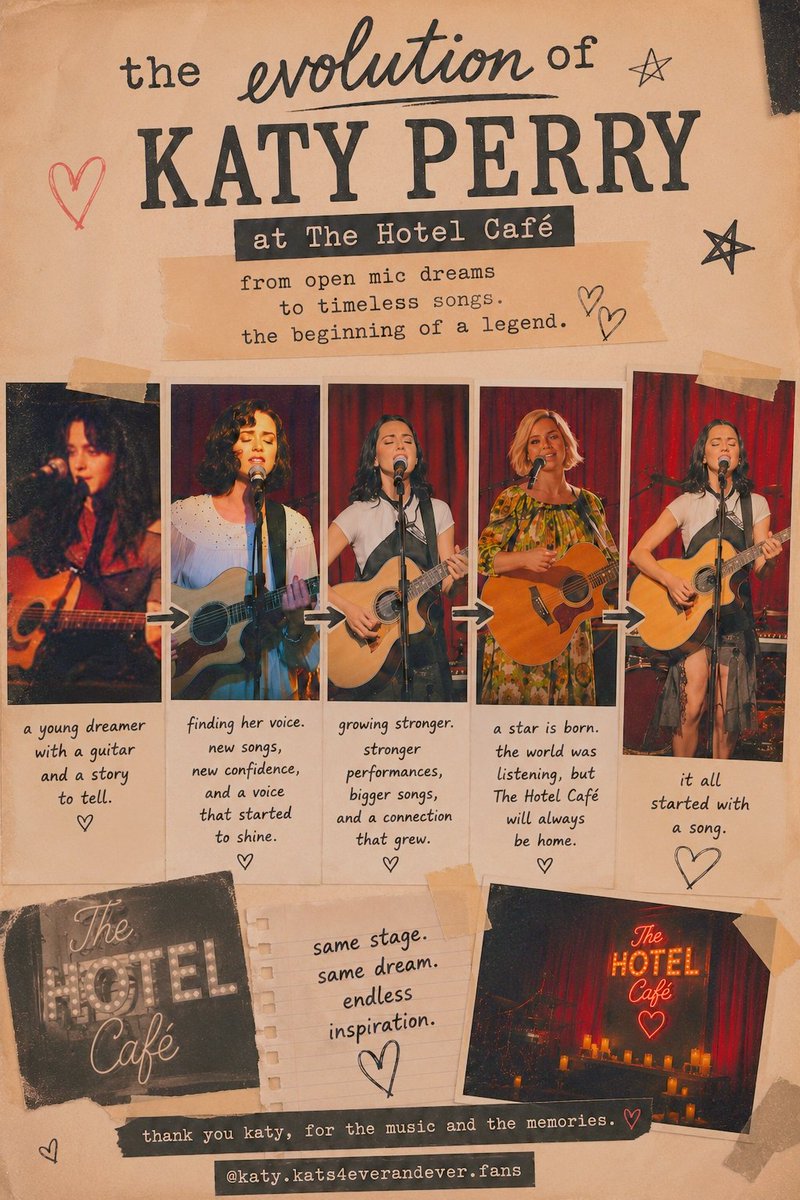 the evolution of
KATY PERRY
at The Hotel Café
from open mic dreams
to timeless songs.
the beginning of a legend.
a young dreamer
with a guitar
and a story
to tell.
finding her voice.
new songs,
new confidence,
and a voice
that started
to shine.
growing stronger.
stronger
performances,
bigger songs,
and a connection
that grew.
a star is born.
the world was
listening, but
The Hotel Café
will always
be home.
it all
started with
a song.
The
HOTEL
Café
same stage.
same dream.
endless
inspiration.
The
HOTEL
Café
thank you katy, for the music and the memories.
@katy.kats4everandever.fans